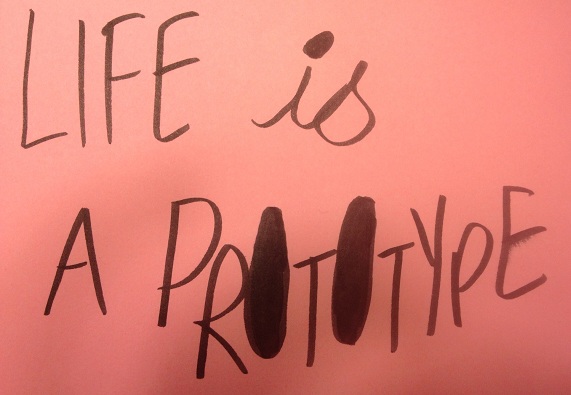 LIFE is
A PROTOTYPE